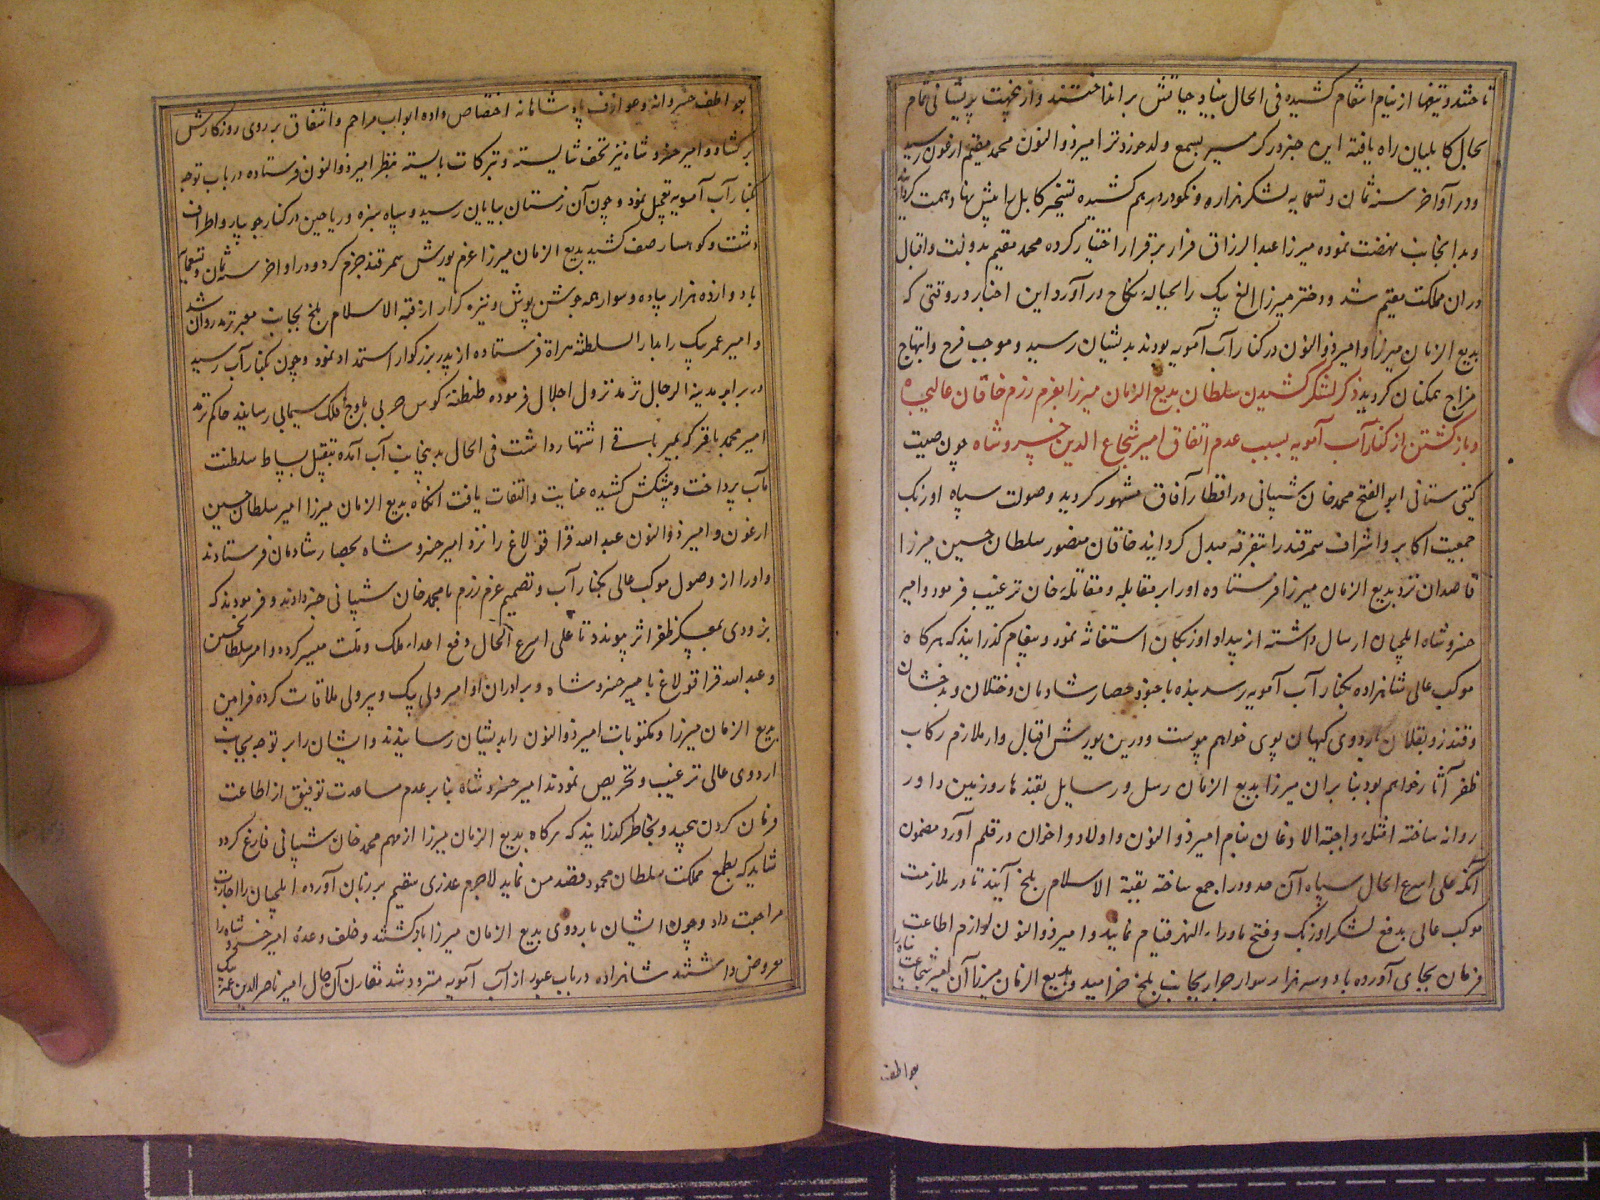 تاختند و تیغها از نیام انتقام کشیده فی الحال بنیاد حیاتش برانداختند و از بجهت پریشانی تمام
بحال کابلیان راه یافته این خبر در گرمسیر بسمع ولد خوردتر امیر ذوالنون محمد مقیم ارغون رسید
و در اواخر سنه ثمان و تسعمایه لشکر هزاره و نکودر درهم کشیده تسخیر کابل را پیش نهاد همت گردانید
و بدانجانب نهضت نموده میرزا عبدالرزاق فرار بر قرار اختیار کرده محمد مقیم بدولت و اقبال
دران مملکت مقیم شد و دختر میرزا الغ بیک را بحباله نکاح درآورد این اخبار در وقتی که
بدیع الزمان میرزا و امیر ذوالنون در کنار آب آمویه بودند بدیشان رسید و موجب فرح و ابتهاج
مزاج همکنان گردید ذکر لشکر کشیدن سلطان بدیع الزمان میرزا بعزم رزم خاقان عالی
و بازگشتن از کنار آب آمویه بسبب عدم اتفاق امیر شجاع الدین خسرو شاه چون صیت
گیتی ستانی ابوالفتح محمد خان شیبانی در اقطار آفاق مشهور گردید و صولت سپاه اوزبک
جمعیت اکابر و اشراف سمرقند را بتفرقه مبدل گردانید خاقان منصور سلطان حسین میرزا
قاصدان نزد بدیع الزمان میرزا فرستاده او را بر مقابله و مقاتله خان ترغیب فرمود و امیر
خسرو شاه ایلچیان ارسال داشته از بیداد اوزبکان استغاثه نمود و پیغام گذرانید که هرگاه
موکب عالی شاهزاده بکنار آب آمویه رسد بنده با جنود حصار شادمان و ختلان و بدخشان
و قندز و بقلان باردوی کیهان پوی خواهم پیوست و درین یورش اقبال وار ملازم رکاب
ظفر آثار خواهم بود بنا بران میرزا بدیع الزمان رسل و رسایل بقندهار و زمین داور
روانه ساخته امثله واجبة الاذعان بنام امیر ذوالنون و اولاد و اخوان در قلم آورد مضمون
آنکه علی اسرع الحال سپاه آن حدود را جمع ساخته بقبة الاسلام بلخ آیند تا در ملازمت
موکب عالی بدفع لشکر اوزبک و فتح ماوراء النهر قیام نمایند و امیر ذوالنون لوازم اطاعت
فرمان بجای آورده با دو سه هزار سوار جرار بجانب بلخ خرامید و بدیع الزمان میرزا آن امیر شجاعت
بعواطف
بعواطف خسروانه و عوارف پادشاهانه اختصاص داده ابواب مراحم و اشفاق بر روی روزگارش
برگشاد و امیر خسرو شاه نیز تحف شایسته و تبرکات بایسته بنظر امیر ذوالنون فرستاده در باب توجه
بکنار آب آمویه تعجیل نمود و چون آن زمستان بپایان رسید و سپاه سبزه و ریاحین در کنار جویبار و اطراف
دشت و کوهسار صف کشید بدیع الزمان میرزا عزم یورش سمرقند جزم کرد و در اواخر سنه ثمان و تسعمایه
با دوازده هزار پیاده و سوار همه جوشن پوش و نیزه گزار از قبة الاسلام بلخ بجانب معبر ترمد روان شد
و امیر عمر بیک را بدار السلطنه هراة فرستاده از پدر بزرگوار استمداد نمود و چون بکنار آب رسید
در برابر مدینة الرجال ترمد نزول اجلال فرموده طنطنه کوس حربی باوج فلک سیمابی رسانید حاکم ترمد
امیر محمد باقر که بمیر باقی اشتهار داشت فی الحال بدینجانب آب آمده بتقبیل بساط سلطنت
مآب پرداخت و پیشکش کشیده عنایت و التفات یافت آنگاه بدیع الزمان میرزا امیر سلطان حسین
ارغون و امیر ذوالنون عبدالله قرا قولاغ را نزد امیر خسرو شاه بحصار شادمان فرستادند
و او را از وصول موکب عالی بکنار آب و تصمیم عزم رزم با محمد خان شیبانی خبر دادند و فرمودند که
بزودی بمعسکر ظفر اثر پیوندد تا علی اسرع الحال دفع اعداء ملک و ملت میسر گردد و امیر سلطان حسین
و عبدالله قرا قولاغ با میر خسرو شاه و برادران او امیر ولی بیک و پیر ولی ملاقات کرده فرامین
بدیع الزمان میرزا و مکتوبات امیر ذوالنون را بدیشان رسانیدند و ایشان را بر توجه بجانب
اردوی عالی ترغیب و تحریص نمودند امیر خسرو شاه بنا بر عدم مساعدت توفیق از اطاعت
فرمان گردن بپیچید و بخاطر گذرانید که هرگاه بدیع الزمان میرزا از مهم محمد خان شیبانی فارغ گردد
شاید که بطمع مملکت سلطان محمود قصد من نماید لاجرم عذری سقیم بر زبان آورده ایلچیان را اجازت
مراجعت داد و چون ایشان باردوی بدیع الزمان میرزا بازگشتند و خلف وعده امیر خسرو شاه را
معروض داشتند شاهزاده در باب عبور از آب آمویه متردد شد مقارن آن حال امیر ناصرالدین عمر بیک